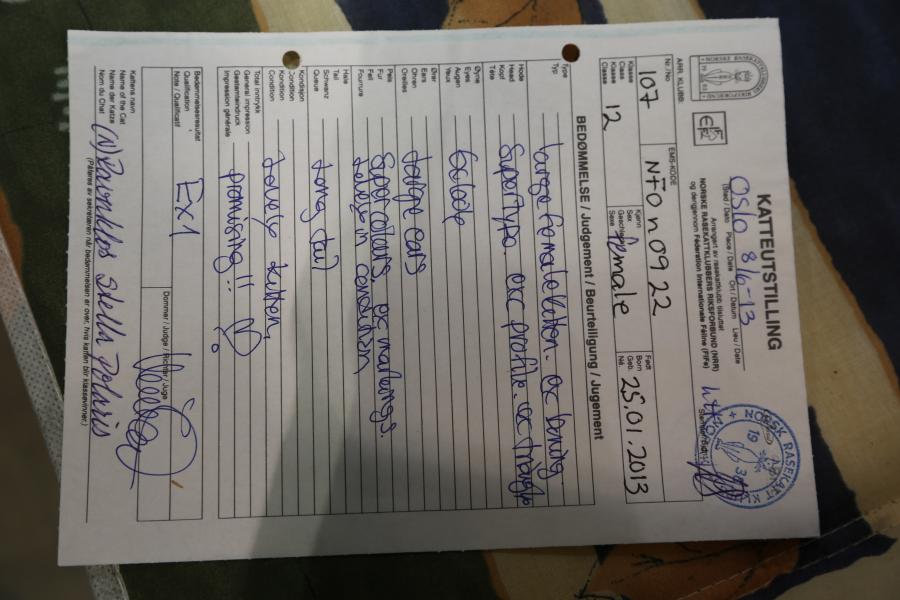 KATTEUTSTILLING
OSLO 8/6-13
(Sted / Date Place / Date Ort / Datum Lieu / Date)
Arrangert av rasekattklubb tilsluttet
NORSKE RASEKATTKLUBBERS RIKSFORBUND (NRR)
og derigjennom Fédération Internationale Féline (FIFe)
NORSK RASEKATT
19
ARR. KLUBB:
Nr./No. EMS-KODE
107 NFO n 09 22
Klasse
Class
Klasse
Classe
12
Kjønn
Sex
Geschlecht
Sexe
female
Født
Born
Geb.
Né.
25.01.2013
BEDØMMELSE / Judgement / Beurteiligung / Jugement
Type
Typ
large female kitten. ex boning
Hode
Head
Kopf
Tête
Supertype. exc profile. ex triangle
Øyne
Eyes
Augen
Yeux
Ører
Ears
Ohren
Oreilles
large ears
Pels
Fur
Fell
Fourrure
Super colours, ex markings.
Lovely in condition
Hale
Tail
Schwanz
Queue
Long tail
Kondisjon
Condition
Kondition
Condition
Lovely kitten,
Total inntrykk
General impression
Gesamteindruck
Impression générale
promising!!
Bedømmelsesresultat
Qualification
Note / Qualificatif
Ex 1
Dommer / Judge / Richter / Juge
Kattens navn
Name of the Cat
Name der Katze
Nom du Chat
(N) Stella Polaris
(Påføres av sekretæren når bedømmelsen er over, hvis katten blir klassevinner.)